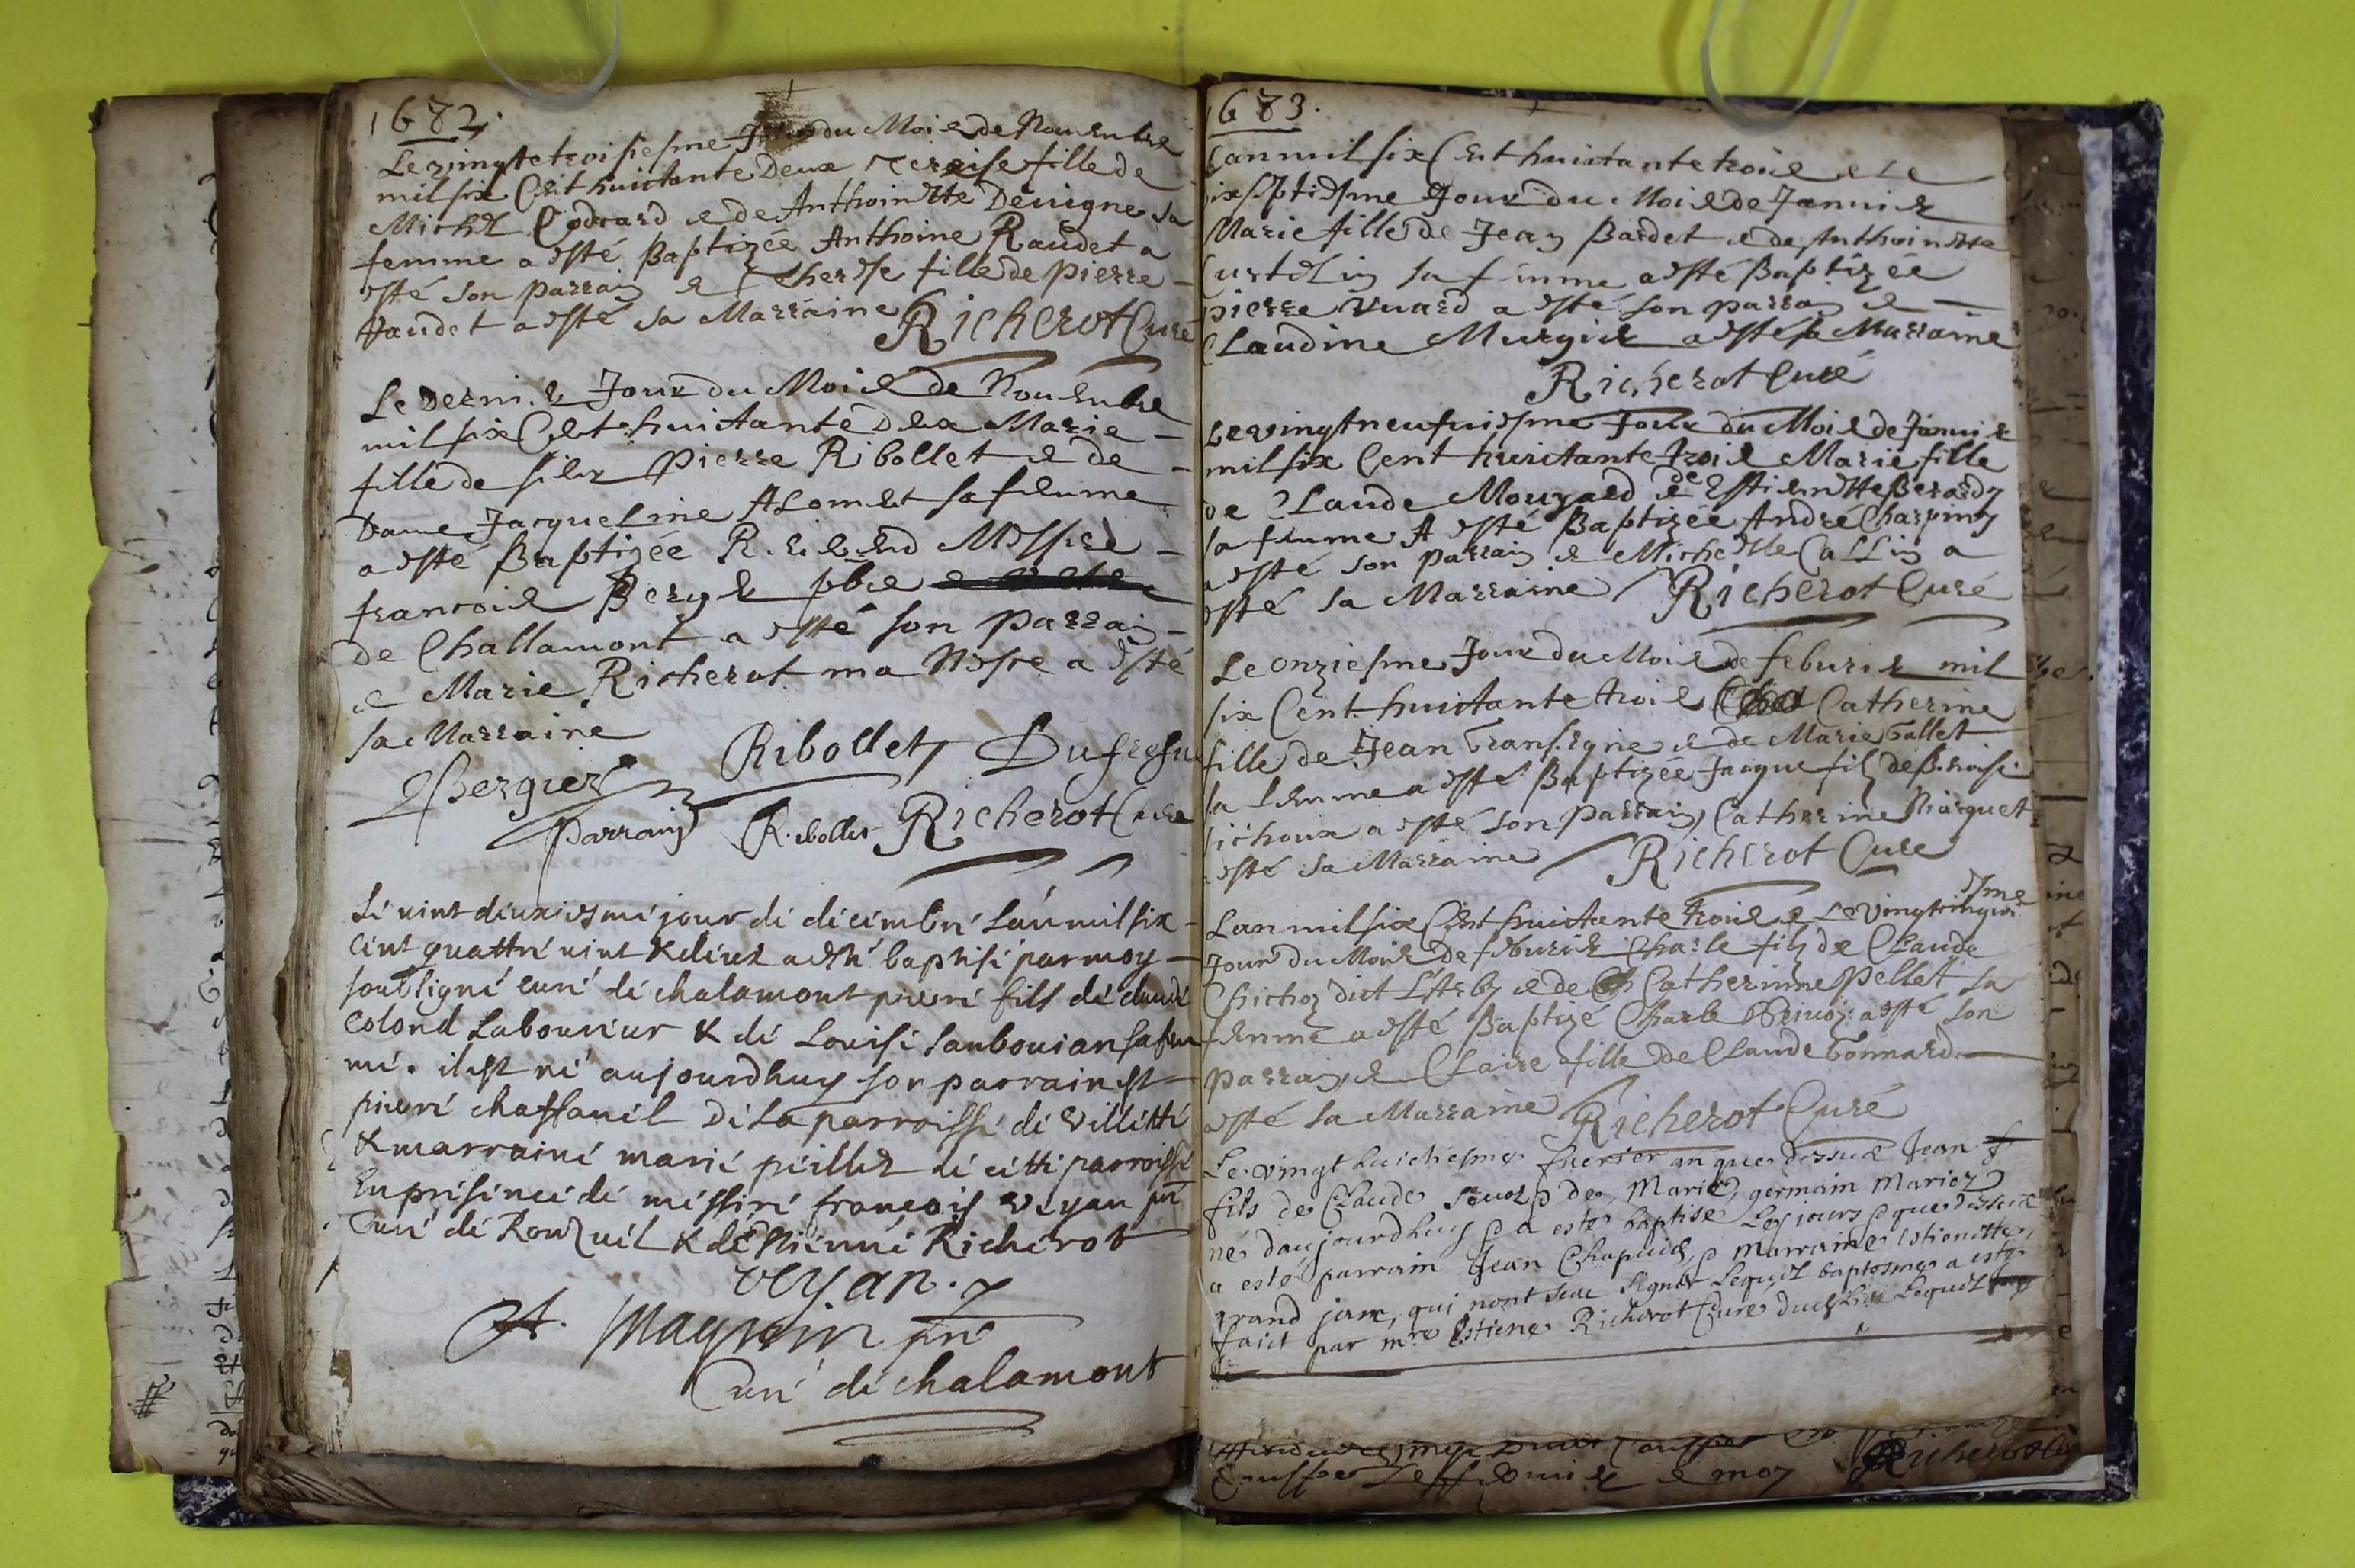 1682.
Le vingtetroisiesme Jour du Mois de Nouembre
mil six Cent huictante Deux Tereise fille de
Michel Godrard & de Anthoinette Deuigne sa
femme a esté Baptizée Anthoine Raudet a
esté son parrain & Therese fille de pierre
Vaudet a esté sa Marraine Richerot Curé
Le Dernier Jour du Mois de Nouembre
mil six Cent huictante Deux Marie
fille de sieur pierre Ribollet & de
Dame Jacqueline Alomet sa femme
a esté Baptizée Reuerend Messire
francois Berger pbre
de Challamont a esté son parrain
& Marie Richerot ma Niesce a esté
sa Marraine
Bergier Ribollet Dufresne
Parrain Ribollet Richerot Curé
Le vint deuxiesme jour de decembre l'an mil six
cent quattre vint & deux a esté baptisé par moy
soubsigné curé de chalamont pierre fils de claude
colond laboureur & de Louise Lanbouian sa fem
me. il est né aujourdhuy son parrain est
pierre chaffauel De la parroisse de Villette
& marraine marie peillet de cette parroisse
En presence de messire francois veyan pre
Curé de Ronzuel & de Estienne Richerot
veyan.
A. Magnin pre
Curé de chalamont
1683.
Lan mil six Cent huictante trois & Le
dixseptiesme Jour du Mois de Januier
Marie fille de Jean Bardet & de Anthoinette
Curtelin sa femme a esté Baptizée
pierre vuard a esté son parrain &
Claudine Murgier a esté sa Marraine
Richerot Curé
Le vingtneufuiesme Jour du Mois de Januier
mil six Cent huictante trois Marie fille
de Claude Mougard & de Estiennette Berardy
sa femme A esté Baptizée André Charpiny
a esté son parrain & Michelle Callin a
esté sa Marraine Richerot Curé
Le onziesme Jour du Mois de feburier mil
six Cent huictante trois Catherine
fille de Jean Fransergne & de Marie Gallet
sa femme a esté Baptizée Jacque filz de Benoist
Lichoux a esté son parrain, Catherine Niarquet
esté sa Marraine Richerot Cure
Lan mil six Cent huictante trois & Le vingtcinquiesme
Jour du Mois de feburier Charle filz de Claude
Chichoz dict L'Arby & de Catherinne Pellet sa
femme a esté Baptizé Charle Privoz a esté son
parrain & Claire fille de Claude Gonnard
esté sa Marraine Richerot Curé
Le vingt huichiesme feurier an que dessus Jean
fils de Claude Seuoz & de Marie germain Mariez
né daujourdhuy & a esté baptisé les jours & que dessus
a esté parrain Jean Chapuis, & Marraine Estienette
grand jean, qui nont sceu signer Lequel baptesme a esté
faict par mre Estiene Richerot Cure dud Lieu Lequel
& moy Richerot